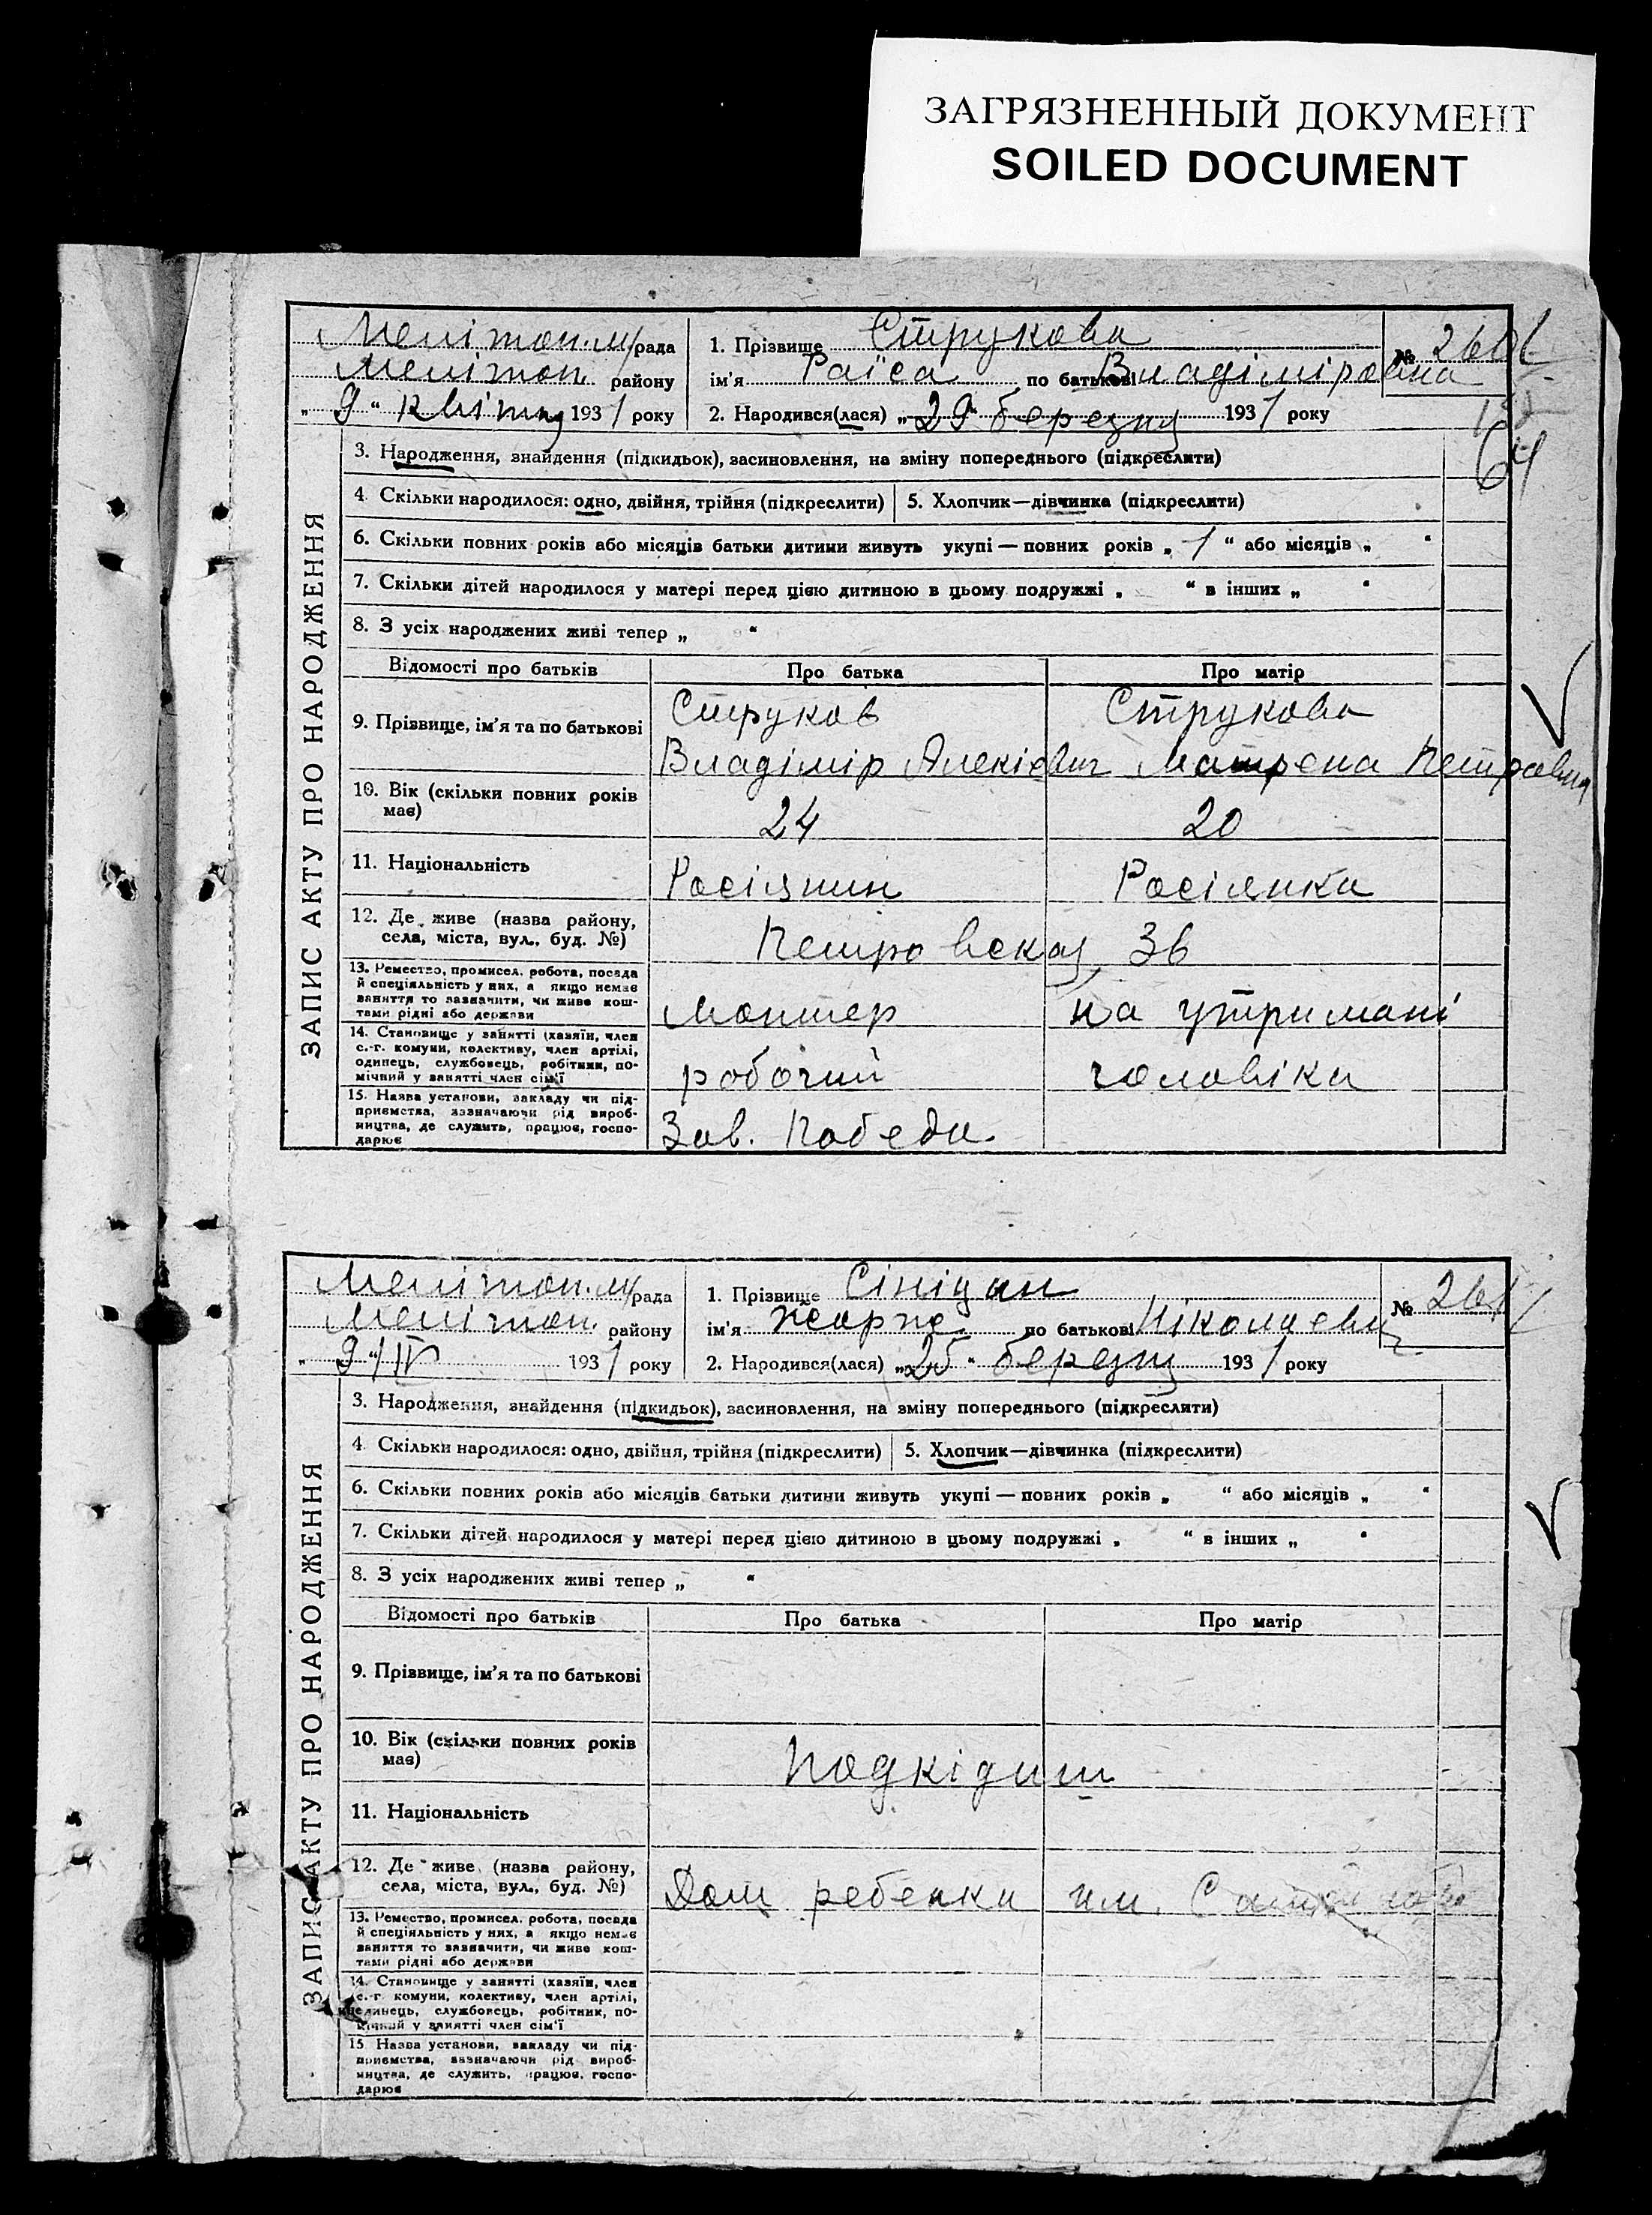 ЗАГРЯЗНЕННЫЙ ДОКУМЕНТ
SOILED DOCUMENT
ЗАПИС АКТУ ПРО НАРОДЖЕННЯ
Мелітоп. м/рада
Мелітоп. району
„9“ Квітня 1931 року
1. Прізвище Струкова
ім'я Раїса по батькові Владіміровна
2. Народився(лася) „29“ березня 1931 року
№
64
3. Народження, знайдення (підкидьок), засиновлення, на зміну попереднього (підкреслити)
4. Скільки народилося: одно, двійня, трійня (підкреслити) 5. Хлопчик—дівчинка (підкреслити)
6. Скільки повних років або місяців батьки дитини живуть укупі — повних років „ 1 “ або місяців „ “
7. Скільки дітей народилося у матері перед цією дитиною в цьому подружжі „ “ в інших „ “
8. З усіх народжених живі тепер „ “
Відомості про батьків Про батька Про матір
9. Прізвище, ім'я та по батькові
Струков Струкова
Владімір Алексієвич Матрена Петровна
10. Вік (скільки повних років
має)
24 20
11. Національність
Росіянин Росіянка
12. Де живе (назва району,
села, міста, вул., буд. №)
Петровская 36
13. Ремество, промисел, робота, посада
й спеціяльність у них, а якщо немає
заняття то зазначити, чи живе кош-
тами рідні або держави
Монтер на утримані
14. Становище у занятті (хазяїн, член
с.-г. комуни, колективу, член артілі,
одинець, службовець, робітник, по-
мічний у занятті член сім'ї
робочий чоловіка
15. Назва установи, закладу чи під-
приємства, зазначаючи рід вироб-
ництва, де служить, працює, госпо-
дарює
Зав. Победа
ЗАПИС АКТУ ПРО НАРОДЖЕННЯ
Мелітоп. м/рада
Мелітоп. району
„9“/IV 1931 року
1. Прізвище Сініцин
ім'я по батькові Ніколаевич
2. Народився(лася) „25“ березня 1931 року
№ 261
3. Народження, знайдення (підкидьок), засиновлення, на зміну попереднього (підкреслити)
4. Скільки народилося: одно, двійня, трійня (підкреслити) 5. Хлопчик—дівчинка (підкреслити)
6. Скільки повних років або місяців батьки дитини живуть укупі — повних років „ “ або місяців „ “
7. Скільки дітей народилося у матері перед цією дитиною в цьому подружжі „ “ в інших „ “
8. З усіх народжених живі тепер „ “
Відомості про батьків Про батька Про матір
9. Прізвище, ім'я та по батькові
10. Вік (скільки повних років
має)
Подкідиш
11. Національність
12. Де живе (назва району,
села, міста, вул., буд. №)
Дом ребенка им.
13. Ремество, промисел, робота, посада
й спеціяльність у них, а якщо немає
заняття то зазначити, чи живе кош-
тами рідні або держави
14. Становище у занятті (хазяїн, член
с.-г. комуни, колективу, член артілі,
одинець, службовець, робітник, по-
мічний у занятті член сім'ї
15. Назва установи, закладу чи під-
приємства, зазначаючи рід вироб-
ництва, де служить, працює, госпо-
дарює